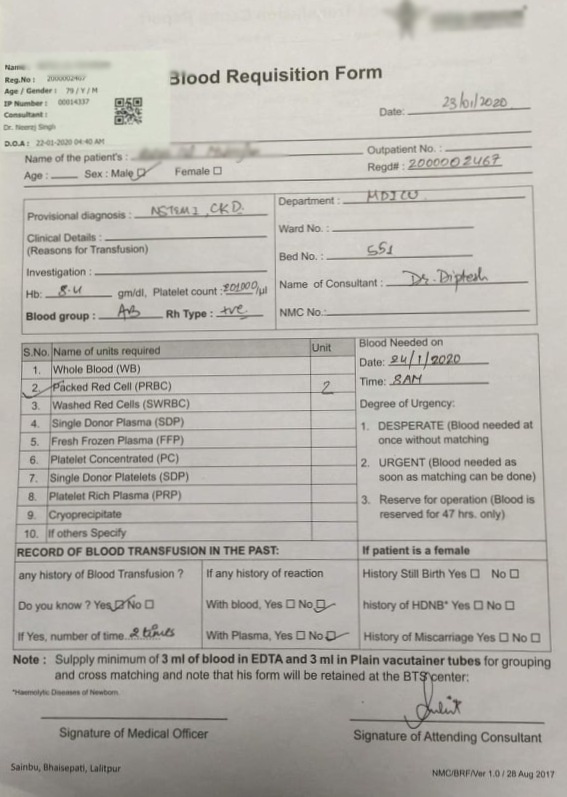 Name:
Reg.No : 2000002467
Age / Gender : 79 / Y / M
IP Number : 00014337
Consultant :
Dr. Neeraj Singh
D.O.A : 22-01-2020 04:40 AM
Blood Requisition Form
Date: 23/01/2020
Name of the patient's :
Outpatient No. :
Age : Sex : Male ☑ Female ☐
Regd# : 2000002467
Provisional diagnosis : NSTEMI, CKD.
Department : MDICU
Clinical Details :
(Reasons for Transfusion)
Ward No. :
Investigation :
Bed No. : 551
Hb: 8.4 gm/dl, Platelet count : 201000/µl
Name of Consultant : Dr. Diptesh
Blood group : AB Rh Type : +ve
NMC No.:
S.No. Name of units required Unit
1. Whole Blood (WB)
2. Packed Red Cell (PRBC) 2
3. Washed Red Cells (SWRBC)
4. Single Donor Plasma (SDP)
5. Fresh Frozen Plasma (FFP)
6. Platelet Concentrated (PC)
7. Single Donor Platelets (SDP)
8. Platelet Rich Plasma (PRP)
9. Cryoprecipitate
10. If others Specify
Blood Needed on
Date: 24/1/2020
Time: 8AM
Degree of Urgency:
1. DESPERATE (Blood needed at
once without matching
2. URGENT (Blood needed as
soon as matching can be done)
3. Reserve for operation (Blood is
reserved for 47 hrs. only)
RECORD OF BLOOD TRANSFUSION IN THE PAST:
If patient is a female
any history of Blood Transfusion ?
If any history of reaction
History Still Birth Yes ☐ No ☐
Do you know ? Yes ☑ No ☐
With blood, Yes ☐ No ☑
history of HDNB* Yes ☐ No ☐
If Yes, number of time. 2 times
With Plasma, Yes ☐ No ☑
History of Miscarriage Yes ☐ No ☐
Note : Sulpply minimum of 3 ml of blood in EDTA and 3 ml in Plain vacutainer tubes for grouping
and cross matching and note that his form will be retained at the BTS center:
*Haemolytic Diseases of Newborn.
Signature of Medical Officer
Signature of Attending Consultant
Sainbu, Bhaisepati, Lalitpur
NMC/BRF/Ver 1.0 / 28 Aug 2017